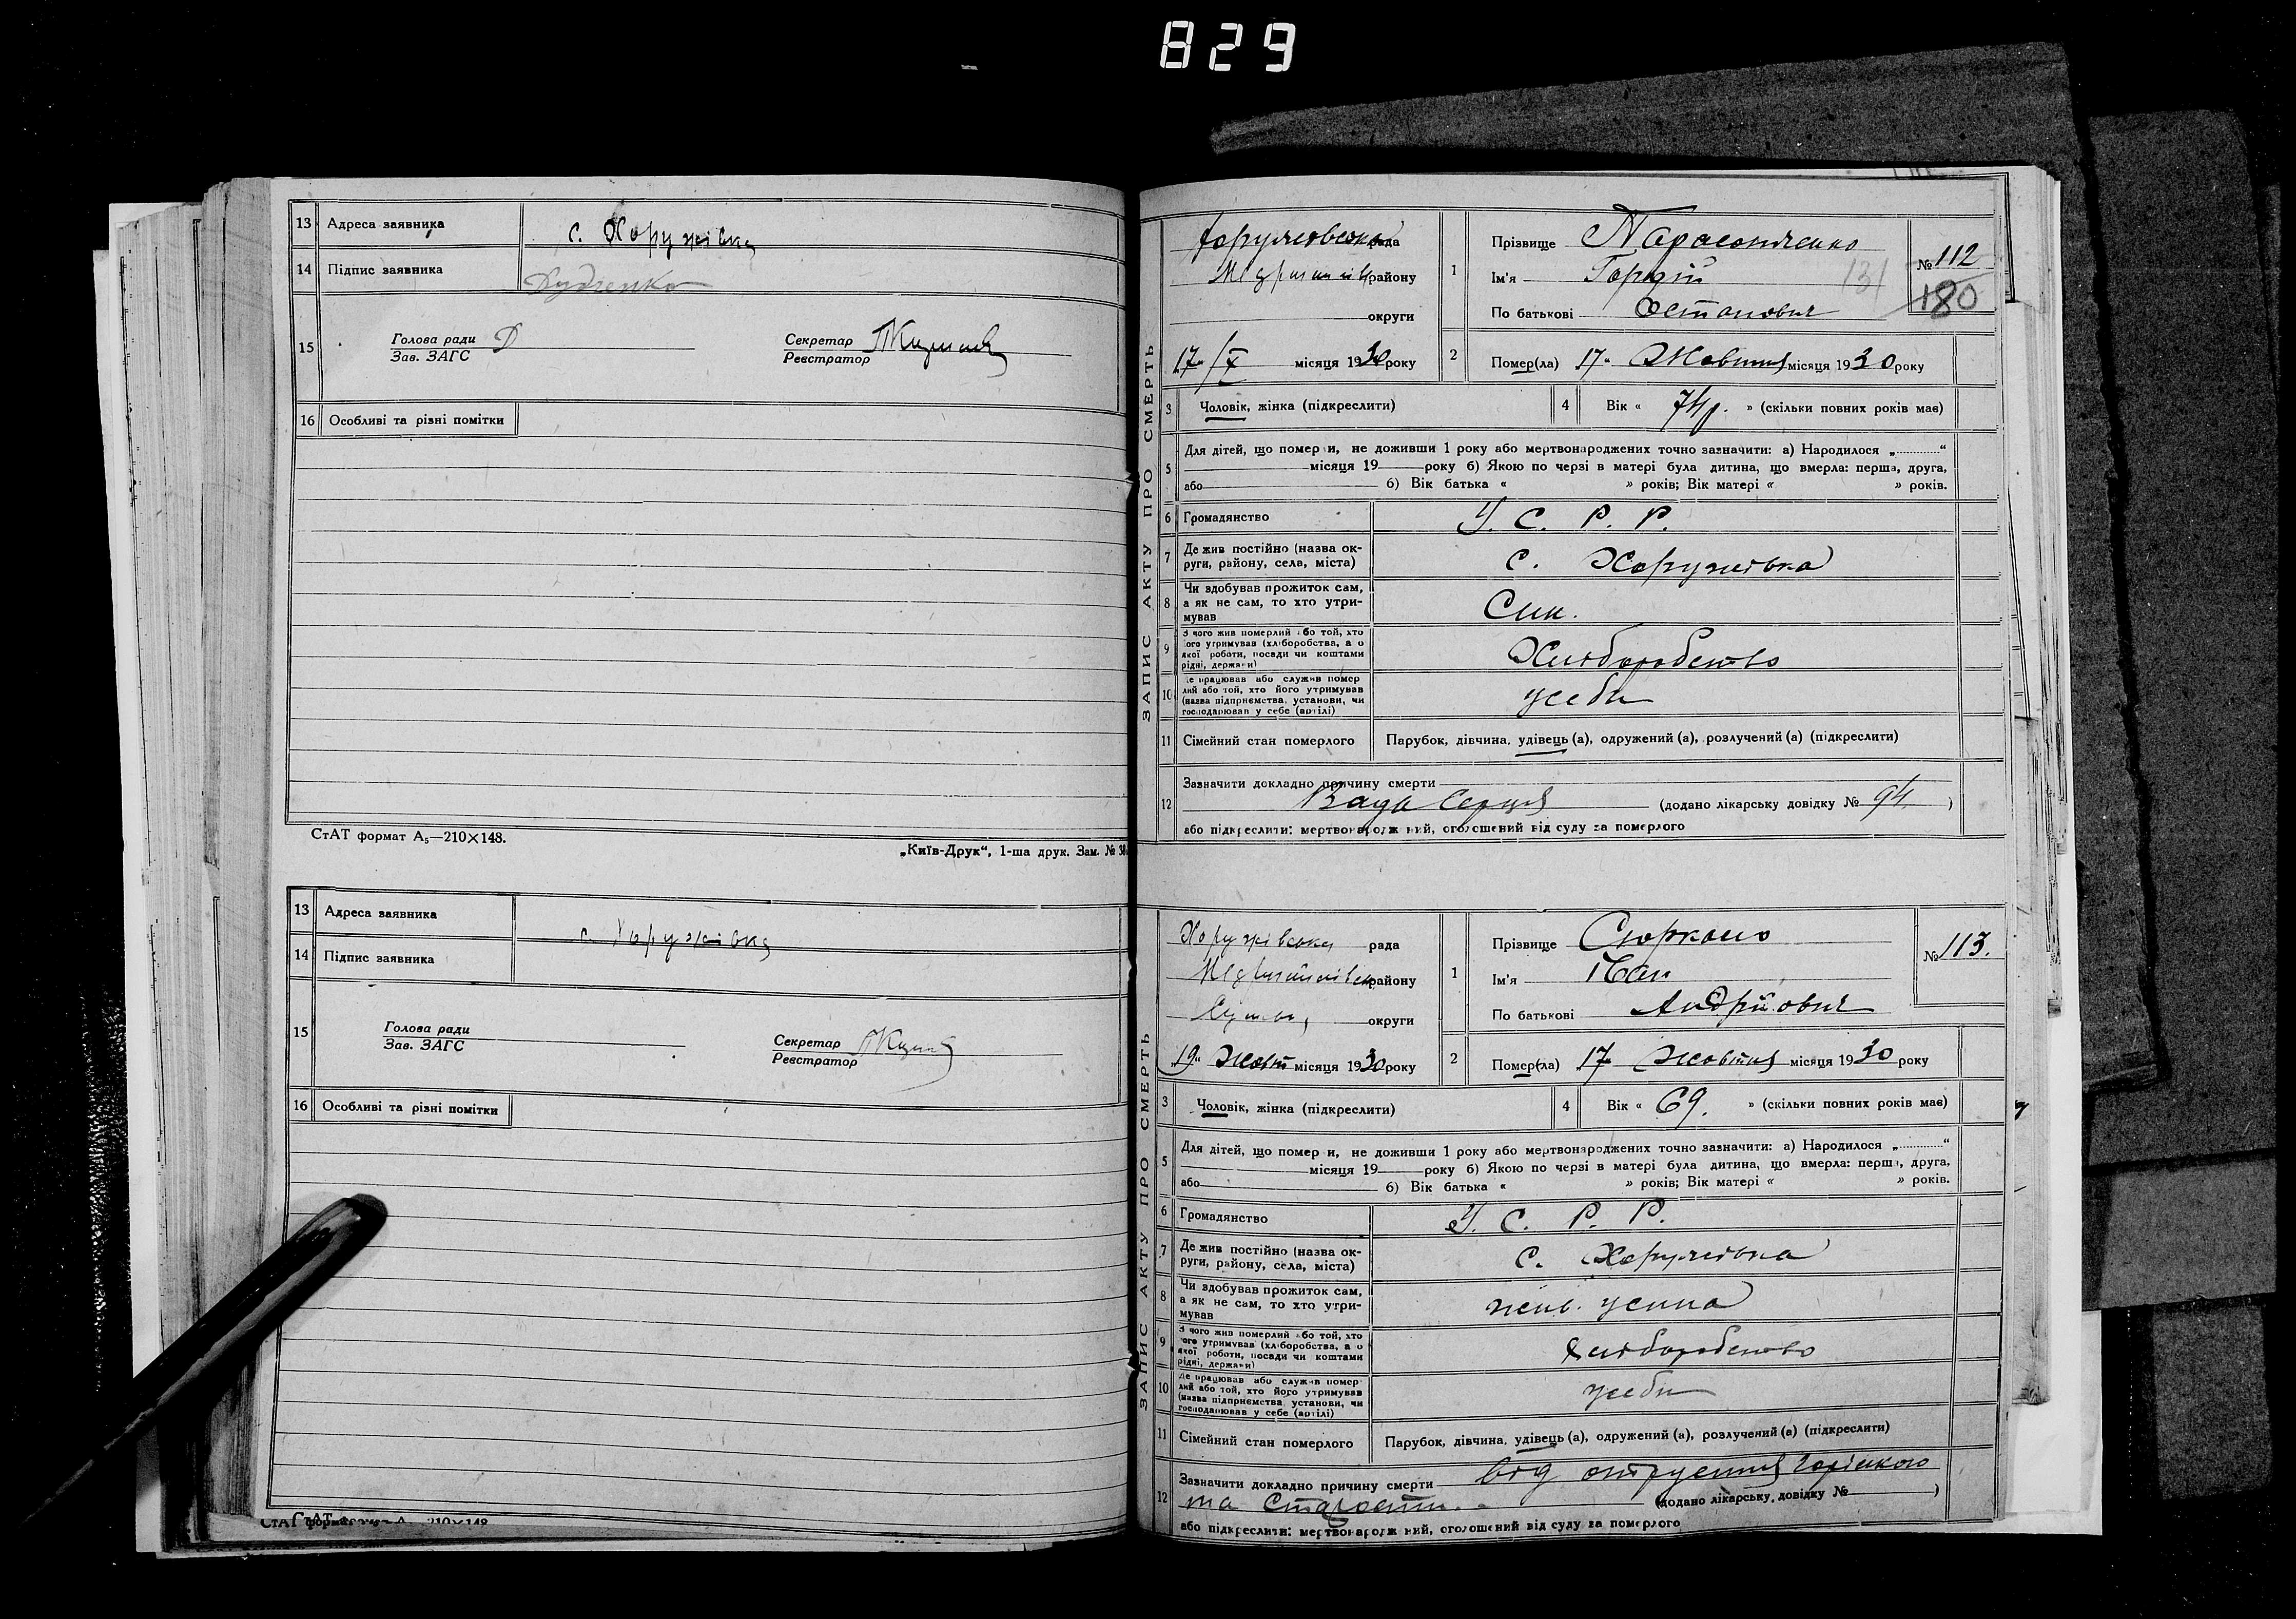 829
13 Адреса заявника с. Хоружівка
14 Підпис заявника Дудченко
15 Голова ради Д
Зав. ЗАГС
Секретар
Реєстратор
16 Особливі та різні помітки
СтАТ формат А₅—210×148.
„Київ-Друк“, 1-ша друк. Зам. №
13 Адреса заявника с. Хоружівка
14 Підпис заявника
15 Голова ради
Зав. ЗАГС
Секретар
Реєстратор
16 Особливі та різні помітки
СтАТ
ЗАПИС АКТУ ПРО СМЕРТЬ
Хоружевська рада
району
округи
17/X місяця 1930 року
1 Прізвище
Ім'я Гордій
По батькові Остапович
№ 112
131
180
2 Помер(ла) 17 Жовтня місяця 1930 року
3 Чоловік, жінка (підкреслити)
4 Вік « 74 р. » (скільки повних років має)
5 Для дітей, що померли, не доживши 1 року або мертвонароджених точно зазначити: а) Народилося „............“
місяця 19 року б) Якою по черзі в матері була дитина, що вмерла: перша, друга,
або б) Вік батька « » років; Вік матері « » років.
6 Громадянство У. С. Р. Р.
7 Де жив постійно (назва ок-
руги, району, села, міста) с. Хоружевка
8 Чи здобував прожиток сам,
а як не сам, то хто утри-
мував Син.
9 З чого жив померлий або той, хто
його утримував (хліборобства, а о
якої роботи, посади чи коштами
рідні, держави) Хліборобство
10 Де працював або служив помер
лий або той, хто його утримував
(назва підприємства, установи, чи
господарював у себе (артілі) у себи
11 Сімейний стан померлого Парубок, дівчина, удівець (а), одружений (а), розлучений (а) (підкреслити)
12 Зазначити докладно причину смерти
Вада Серця (додано лікарську довідку № 94 )
або підкреслити: мертвонароджений, оголошений від суду за померлого
ЗАПИС АКТУ ПРО СМЕРТЬ
Хоружівська рада
району
округи
19 Жовт місяця 1930 року
1 Прізвище
Ім'я Іван
По батькові Андрійович
№ 113.
2 Помер(ла) 17 Жовтня місяця 1930 року
3 Чоловік, жінка (підкреслити)
4 Вік « 69. » (скільки повних років має)
5 Для дітей, що померли, не доживши 1 року або мертвонароджених точно зазначити: а) Народилося „............“
місяця 19 року б) Якою по черзі в матері була дитина, що вмерла: перша, друга,
або б) Вік батька « » років; Вік матері « » років.
6 Громадянство У. С. Р. Р.
7 Де жив постійно (назва ок-
руги, району, села, міста) с. Хоружевка
8 Чи здобував прожиток сам,
а як не сам, то хто утри-
мував
9 З чого жив померлий або той, хто
його утримував (хліборобства, а о
якої роботи, посади чи коштами
рідні, держави) Хліборобство
10 Де працював або служив помер
лий або той, хто його утримував
(назва підприємства, установи, чи
господарював у себе (артілі) у себи
11 Сімейний стан померлого Парубок, дівчина, удівець (а), одружений (а), розлучений (а) (підкреслити)
12 Зазначити докладно причину смерти від отруєння
та Старости. (додано лікарську довідку № )
або підкреслити: мертвонароджений, оголошений від суду за померлого